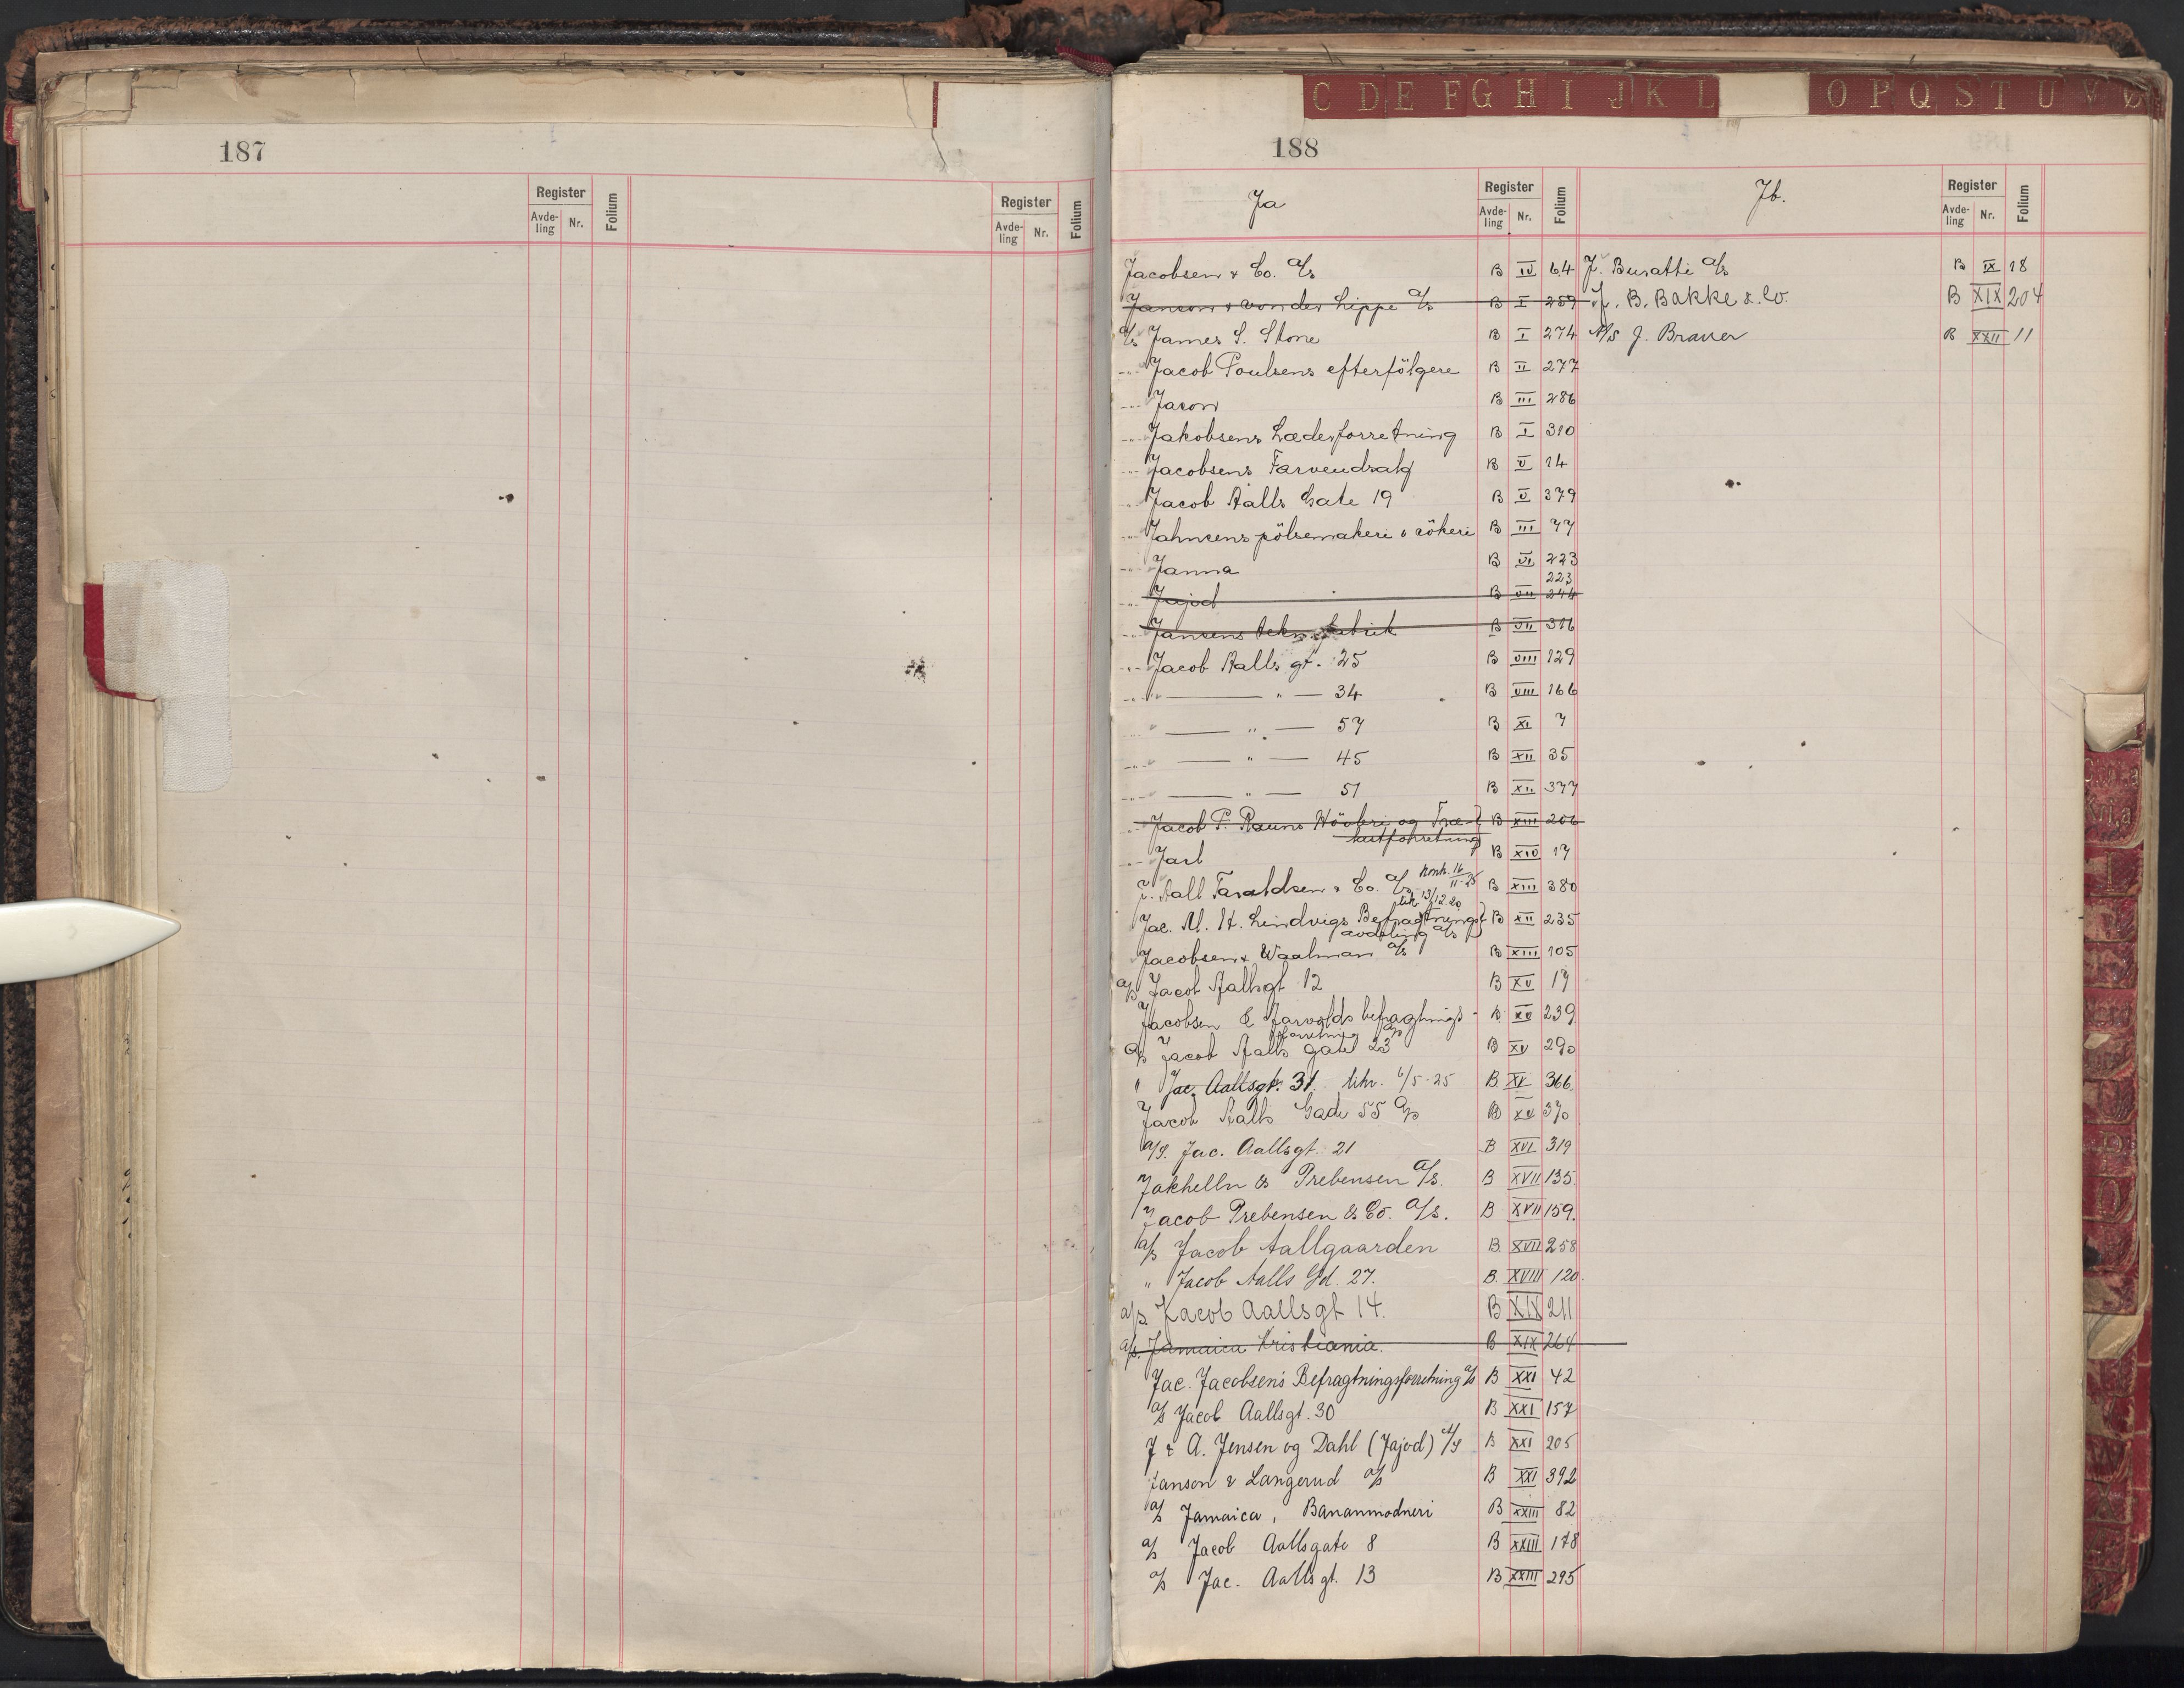 187
Register
Avde-ling Nr. Folium
Register
Avde-ling Nr. Folium
C D E F G H I J K L O P Q S T U V Ø
188
Ja
Register
Avde-ling Nr. Folium
Jacobsen & Co. A/s B IV 64
Janson & von der Lippe A/s B I 259
A/s James S. Stone B I 274
-"- Jacob Poulsens efterfölgere B II 277
-"- Jason B III 286
-"- Jakobsens Læderforretning B I 310
-"- Jacobsens Farveudsalg B V 14
-"- Jacob Aalls Gate 19 B V 379
-"- Jahnsens pölsemakeri & rökeri B III 77
-"- Janna B VI 223
223
-"- Jajod B VII 244
-"- Jansens tekn. fabrik B VII 316
-"- Jacob Aalls gt. 25 B VIII 129
-"- " — " — 34 B VIII 166
" — " — 57 B XI 7
-"- " — " — 45 B XII 35
-"- " — " — 51 B XII 377
-"- Jacob P. Rauns Hövleri og Træ- B XIII 206
lastforretning
-"- Jarl B XIV 17
J. Aall Taraldsen & Co. A/s Konk. 16/11-25 B XIII 380
lik 13/12.20
Jac. M. K. Lindvigs Befragtnings B XII 235
avdeling A/s
Jacobsen & Waalman A/s B XIII 105
A/s Jacob Aallsgt 12 B XV 17
Jacobsen & Jarvolds befragtnings- B XV 239
forretning A/s
A/s Jacob Aalls gate 23 B XV 290
" Jac. Aallsgt. 31. likv. 6/5-25 B XV 366
Jacob Aalls Gade 55 A/s B XV 370
A/S. Jac. Aallsgt. 21 B XVI 319
Jakhelln & Prebensen A/s. B XVII 135.
Jacob Prebensen & Co. A/s. B XVII 159.
A/s Jacob Aallgaarden B. XVII 258
" Jacob Aalls Gd. 27. B. XVIII 120.
A/s. Jacob Aallsgt 14. B XIX 211
A/s. Jamaica Kristiania. B XIX 264
Jac. Jacobsen's Befragtningsforretning A/s B XXI 42
A/s Jacob Aallsgt. 30 B XXI 157
J & A. Jensen og Dahl (Jajod) A/S B XXI 205
Janson & Langerud A/s B XXI 392
A/s Jamaica, Bananmodneri B XXIII 82
A/s Jacob Aallsgate 8 B XXIII 178
A/s Jac. Aallsgt. 13 B XXIII 295
Jb.
Register
Avde-ling Nr. Folium
J. Buratti A/s B IX 18
J. B. Bakke & Co. B XIX 204
A/S J. Braver B XXII 11